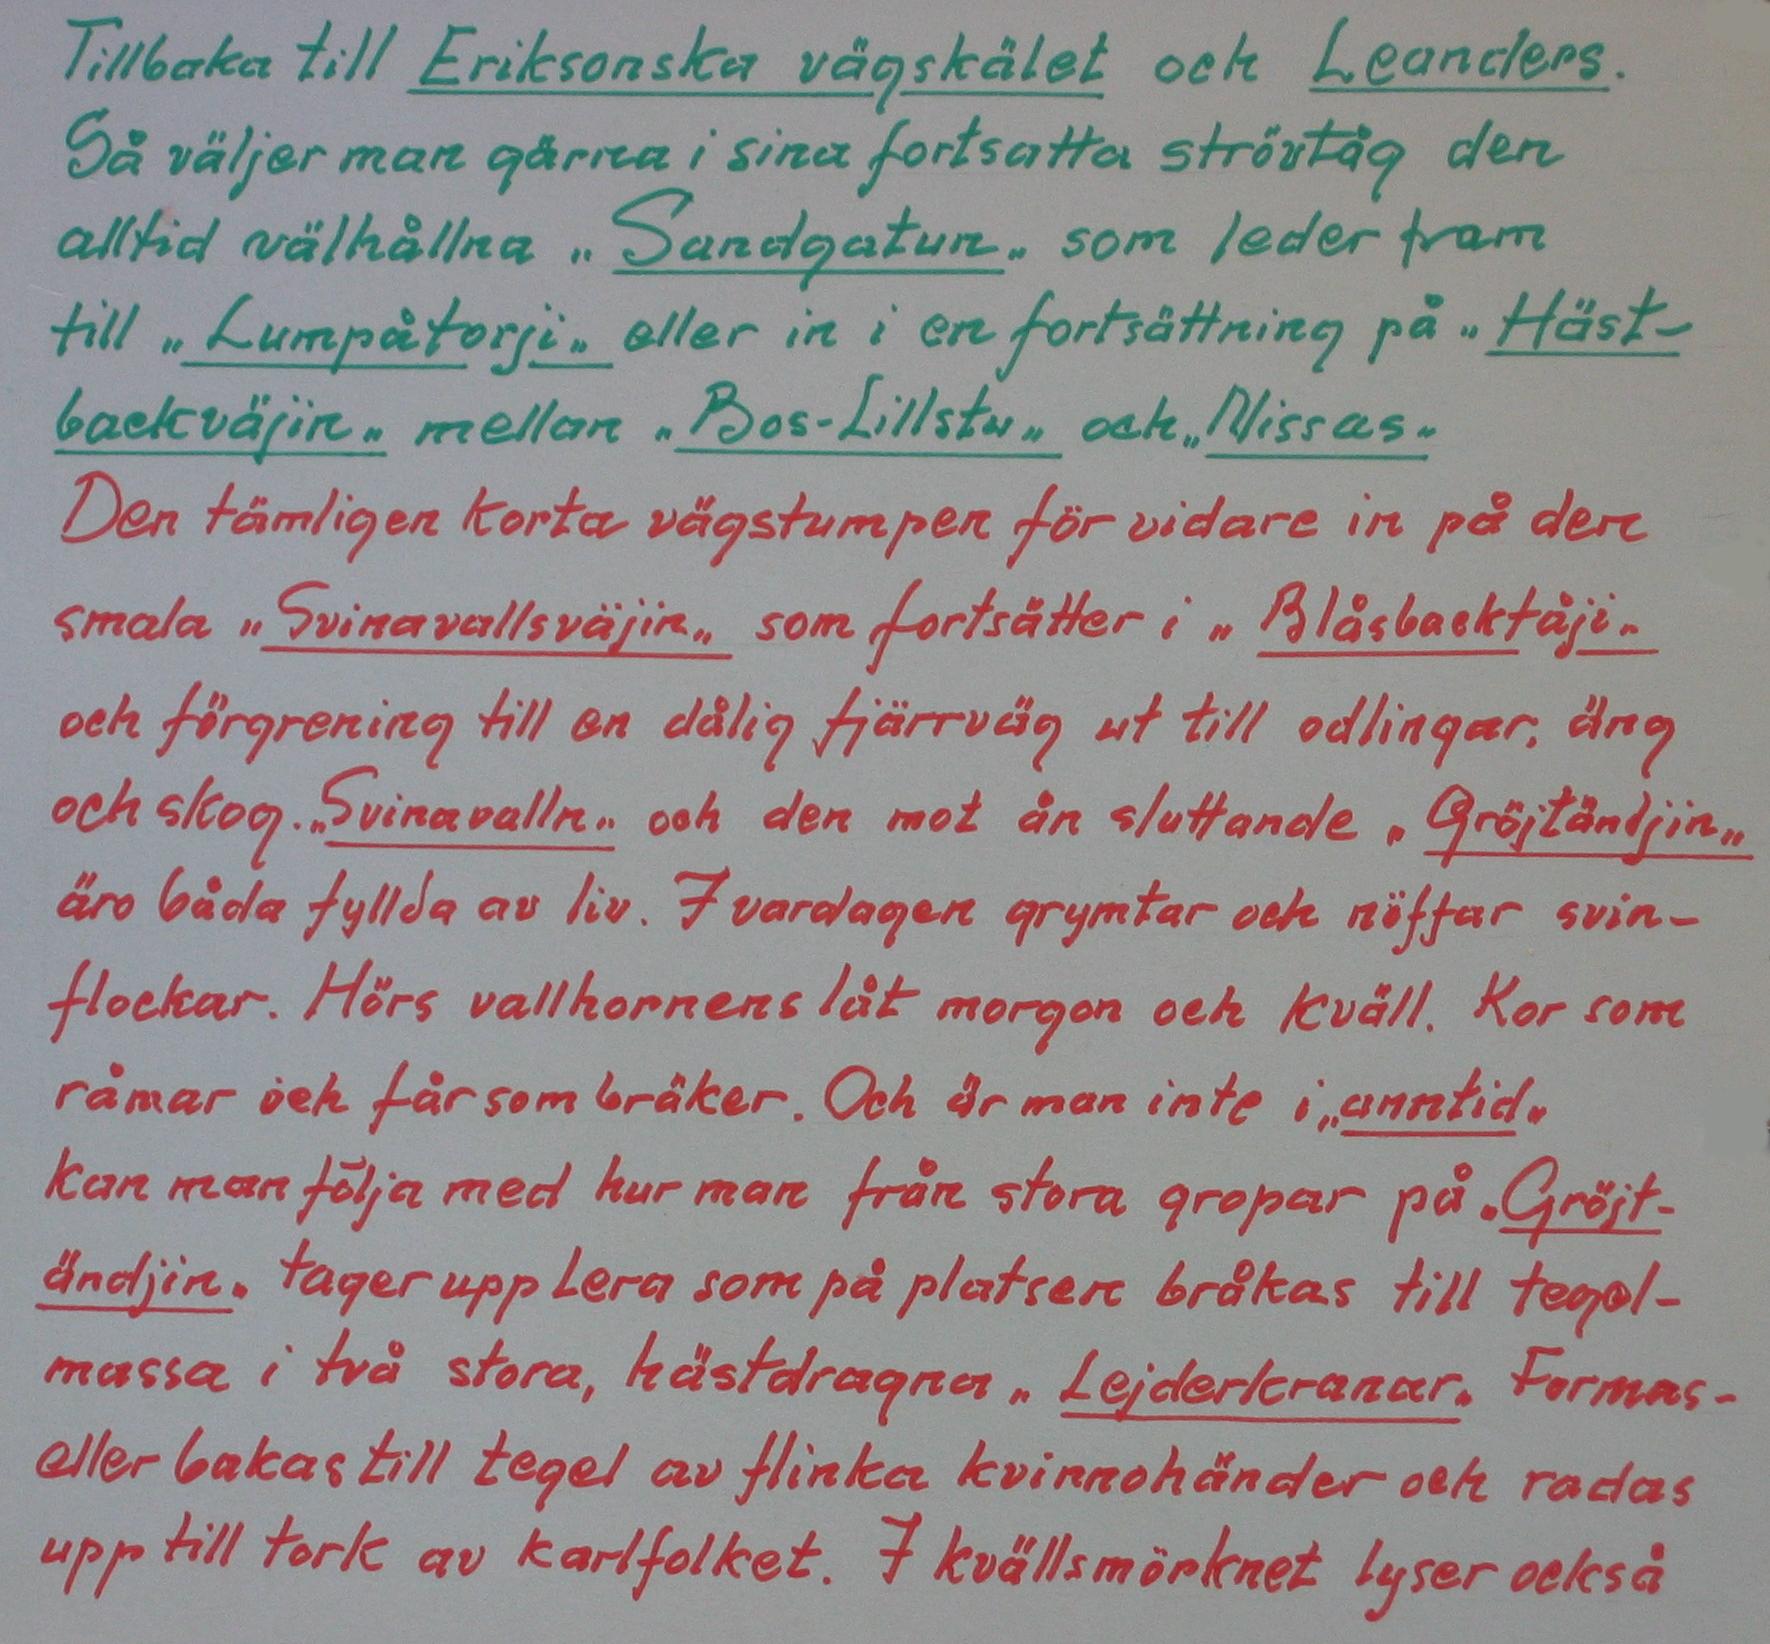 Tillbaka till Eriksonska vägskälet och Leanders.
Så väljer man gärna i sina fortsatta strövtåg den
alltid välhållna „Sandgatun„ som leder fram
till „Lumpåtorji„ eller in i en fortsättning på „Häst-
backväjin„ mellan „Bos-Lillstu„ och „Nissas„
Den tämligen korta vägstumpen för vidare in på den
smala „Svinavallsväjin„ som fortsätter i „Blåsbacktåji„
och förgrening till en dålig fjärrväg ut till odlingar, äng
och skog. „Svinavalln„ och den mot ån sluttande „Gröjtändjin„
äro båda fyllda av liv. I vardagen grymtar och nöffar svin-
flockar. Hörs vallhornens låt morgon och kväll. Kor som
råmar och får som bräker. Och är man inte i „anntid„
kan man följa med hur man från stora gropar på „Gröjt-
ändjin„ tager upp Lera som på platsen bråkas till tegel-
massa i två stora, hästdragna „Lejderkranar„ Formas-
eller bakas till tegel av flinka kvinnohänder och radas
upp till tork av karlfolket. I kvällsmörknet lyser också